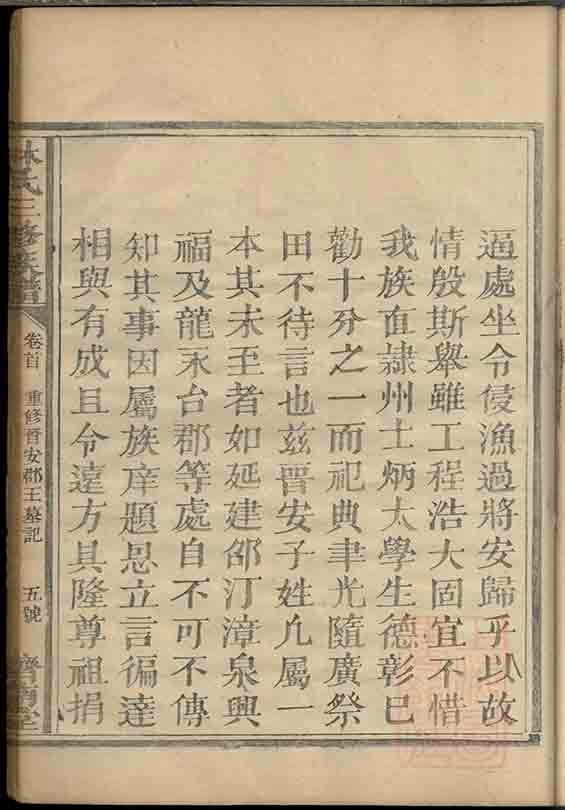 逼處坐令侵漁過將安歸乎以故
情殷斯舉雖工程浩大固宜不惜
我族直隸州士炳太學生德彰已
勸十分之一而祀典聿光隨廣祭
田不待言也茲晋安子姓凡屬一
本其未至者如延建邵汀漳泉興
福及龍永台郡等處自不可不傳
知其事因屬族庠題恩立言徧達
相與有成且令遠方具隆尊祖捐
林氏三修族譜
卷首 重修晉安郡王墓記 五號
濟南堂